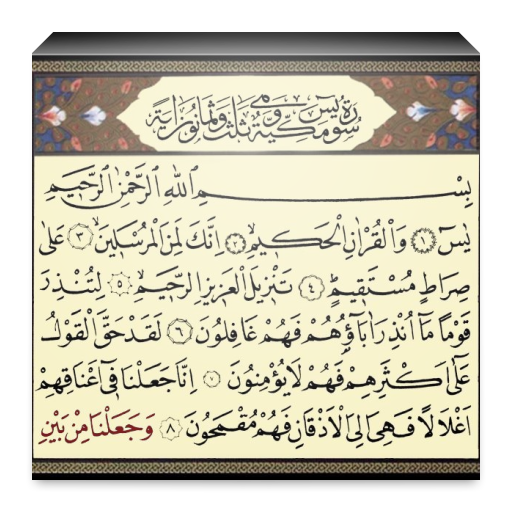 سورة يس وهي مكية ثلث وثمانون اية
بِسْمِ اللهِ الرَّحْمٰنِ الرَّحِيمِ
يسٓ ﴿١﴾ وَالْقُرْاٰنِ الْحَكِيمِ ﴿٢﴾ اِنَّكَ لَمِنَ الْمُرْسَلِينَ ﴿٣﴾ عَلٰى
صِرَاطٍ مُسْتَقِيمٍ ﴿٤﴾ تَنْزِيلَ الْعَزِيزِ الرَّحِيمِ ﴿٥﴾ لِتُنْذِرَ
قَوْمًا مَٓا اُنْذِرَ اٰبَٓاؤُ۬هُمْ فَهُمْ غَافِلُونَ ﴿٦﴾ لَقَدْ حَقَّ الْقَوْلُ
عَلٰٓى اَكْثَرِهِمْ فَهُمْ لَا يُؤْمِنُونَ ﴿٧﴾ اِنَّا جَعَلْنَا فٓي اَعْنَاقِهِمْ
اَغْلَالًا فَهِيَ اِلَى الْاَذْقَانِ فَهُمْ مُقْمَحُونَ ﴿٨﴾ وَجَعَلْنَا مِنْ بَيْنِ